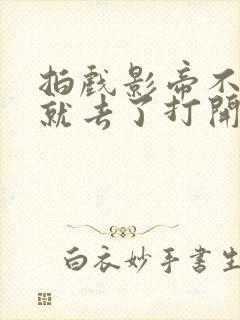 拍戏影帝不
就去了打開
白衣妙手書生